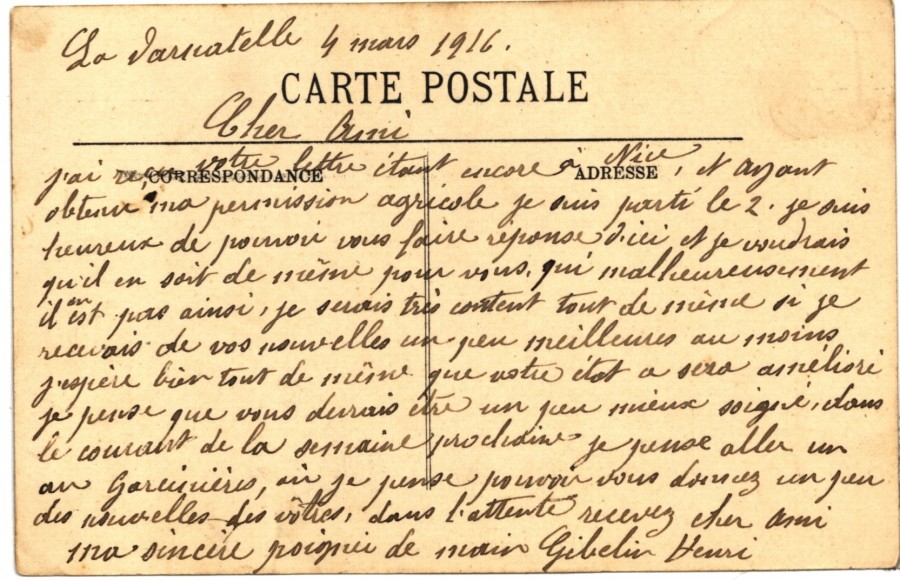 La Darnatelle 4 mars 1916.
CARTE POSTALE
Cher Ami
CORRESPONDANCE
ADRESSE
j'ai reçu votre lettre étant encore à Nice, et ayant
obtenu ma permission agricole je suis parti le 2. je suis
heureux de pouvoir vous faire réponse d'ici et je voudrais
qu'il en soit de même pour vous, qui malheureusement
il en est pas ainsi, je serais très content tout de même si je
recevais de vos nouvelles un peu meilleures au moins
j'espère bien tout de même que votre état a sera amélioré
je pense que vous devrais être un peu mieux soigné, dans
le courant de la semaine prochaine je pense aller un
au Garcinières, où je pense pouvoir vous donnez un peu
des nouvelles des vôtres, dans l'attente recevez cher Ami
ma sincère poignée de main Gibelin Henri